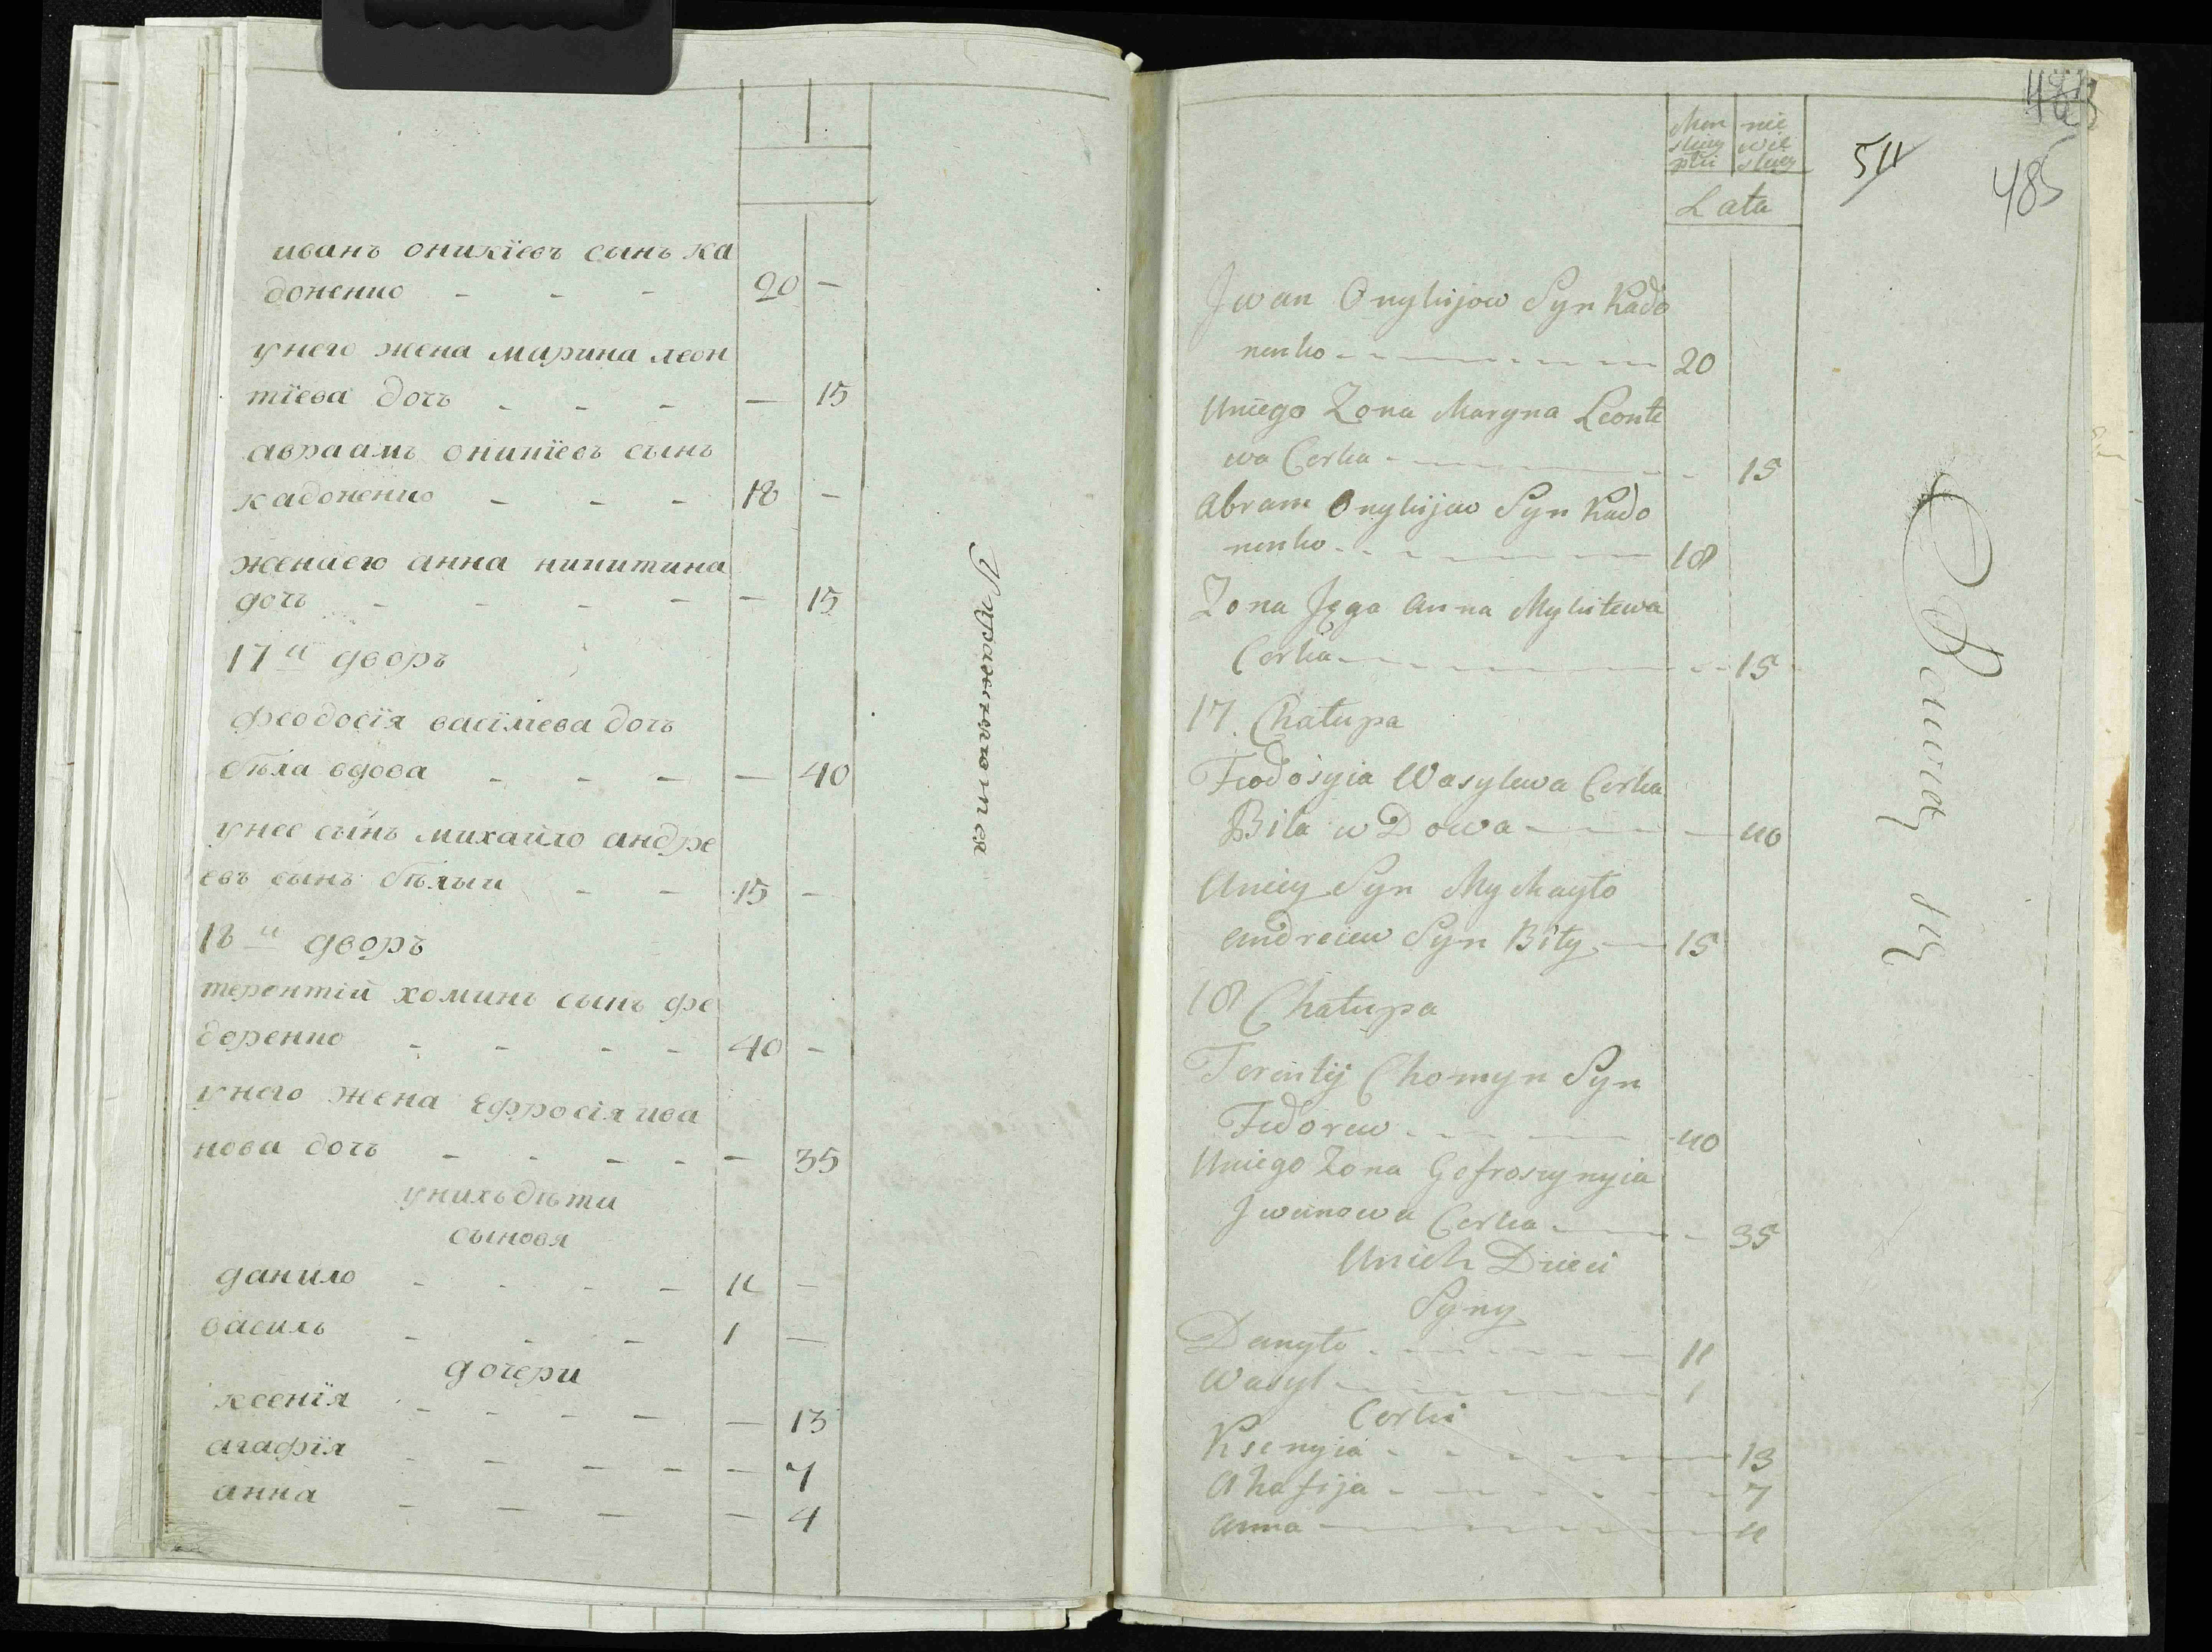 иванъ оникїевъ сынъ ка
доненко - - - 20 -
у него жена марина леон
тїева дочь - - - - 15
авраамъ оникїевъ сынъ
кадоненко - - - 18 -
жена его анна никитина
дочь - - - - - 15
17й дворъ
феодосїя васїлиева дочь
бѣла вдова - - - - 40
у нее сынъ михайло андре
евъ сынъ бѣлыи - - 15 -
18й дворъ
терентїй хоминъ сынъ фе
доренко - - - - 40 -
у него жена Ефросїя ива
нова дочь - - - - - 35
у нихъ дѣти
сыновя
данило - - - - 11 -
василь - - - 1 -
дочери
ксенїя - - - - - 13
агафїя - - - - - 7
анна - - - - 4
Упражняются
485
511
Lata
Jwan Onykijow Syn Kado
nenko - - - 20
Uniego Zona Maryna Leonte
wa Corka - - - 15
Abram Onykijow Syn Kado
nenko - - - 18
Zona Jego Anna Mykitewa
Corka - - - 15
17. Chałupa
Feodosyia Wasylewa Corka
Biła w Dowa - - - 40
Uniey Syn Mychayło
Andreiew Syn Biły - 15
18 Chałupa
Terentij Chomyn Syn
Fedorew - - - 40
Uniego Zona Gefroszynyia
Jwanowa Corka - - - 35
Unich Dzieci
Syny
Danyło - - - 11
Wasyl - - - 1
Corki
Ksenyia - - - 13
Ahafija - - - 7
Anna - - - 4